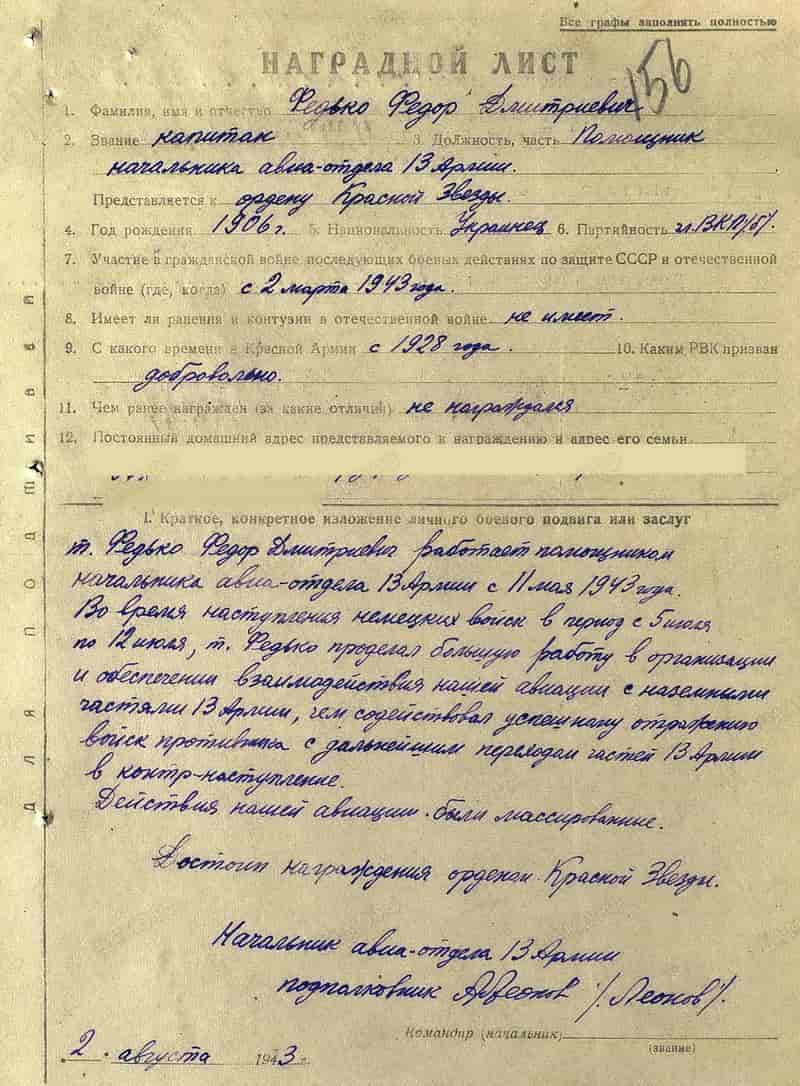 Все графы заполнять полностью
НАГРАДНОЙ ЛИСТ
156
1. Фамилия, имя и отчество Федько Федор Дмитриевич
2. Звание капитан 3. Должность, часть Помощник
начальника авиа-отдела 13 Армии.
Представляется к ордену Красной Звезды.
4. Год рождения 1906 г. 5. Национальность Украинец 6. Партийность чл. ВКП/б/.
7. Участие в гражданской войне, последующих боевых действиях по защите СССР и отечественной
войне (где, когда) с 2 марта 1943 года.
8. Имеет ли ранения и контузии в отечественной войне не имеет.
9. С какого времени в Красной Армии с 1928 года. 10. Каким РВК призван
добровольно.
11. Чем ранее награжден (за какие отличия) не награждался
12. Постоянный домашний адрес представляемого к награждению и адрес его семьи
I. Краткое, конкретное изложение личного боевого подвига или заслуг
т. Федько Федор Дмитриевич работает помощником
начальника авиа-отдела 13 Армии с 11 мая 1943 года.
Во время наступления немецких войск в период с 5 июля
по 12 июля, т. Федько проделал большую работу в организации
и обеспечении взаимодействия нашей авиации с наземными
частями 13 Армии, чем содействовал успешному отражению
войск противника с дальнейшим переходом частей 13 Армии
в контр-наступление.
Действия нашей авиации были массированные.
Достоин награждения орденом Красной Звезды.
Начальник авиа-отдела 13 Армии
подполковник АЛеонов /Леонов/.
Командир (начальник)
(звание)
2 августа 1943 г.
Для подшивки